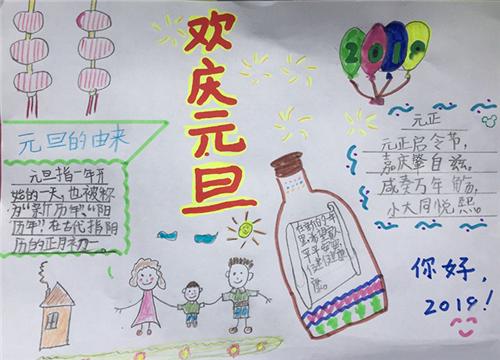 欢庆元旦
2019
元旦的由来
元旦指一年开
始的一天,也被称
为“新历年”“阳
历年”在古代指阴
历的正月初一
元正
元正启令节,
嘉庆肇自兹
咸奏万年觞,
小大同悦熙。
你好,
2019!